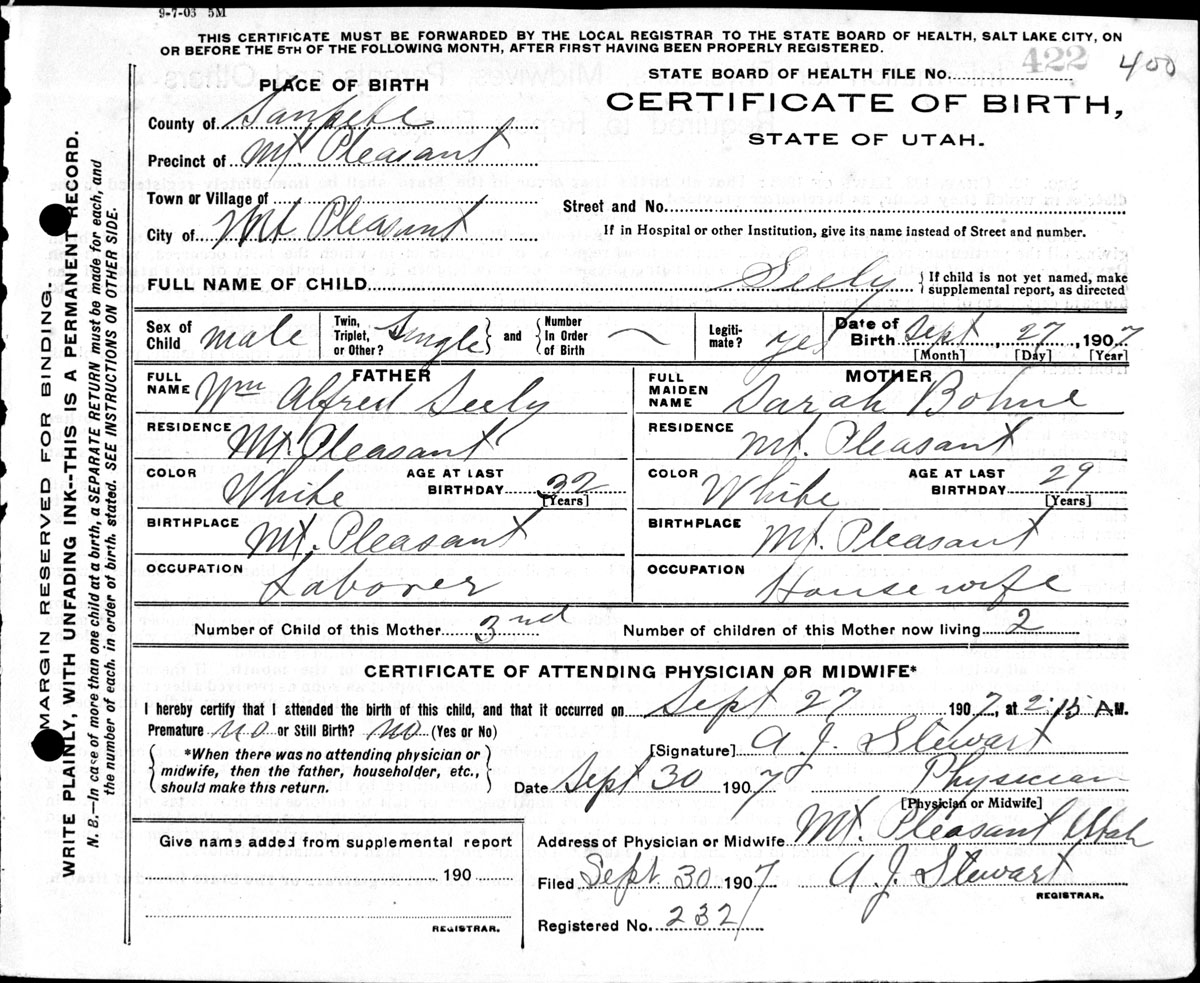 9-7-03 5M
THIS CERTIFICATE MUST BE FORWARDED BY THE LOCAL REGISTRAR TO THE STATE BOARD OF HEALTH, SALT LAKE CITY, ON
OR BEFORE THE 5TH OF THE FOLLOWING MONTH, AFTER FIRST HAVING BEEN PROPERLY REGISTERED.
STATE BOARD OF HEALTH FILE NO. 422 400
PLACE OF BIRTH
CERTIFICATE OF BIRTH,
STATE OF UTAH.
County of Sanpete
Precinct of Mt. Pleasant
Town or Village of
Street and No.
City of Mt Pleasant
If in Hospital or other Institution, give its name instead of Street and number.
FULL NAME OF CHILD Seely { If child is not yet named, make
supplemental report, as directed
Sex of Child male Twin, Triplet, or Other? Single and Number In Order of Birth Legiti- mate? yes Date of Birth Sept, 27, 1907
[Month] [Day] [Year]
FATHER
FULL NAME Wm Alfred Seely
RESIDENCE Mt. Pleasant
COLOR White AGE AT LAST BIRTHDAY 32 [Years]
BIRTHPLACE Mt. Pleasant
OCCUPATION Laborer
MOTHER
FULL MAIDEN NAME Sarah Bohne
RESIDENCE Mt. Pleasant
COLOR White AGE AT LAST BIRTHDAY 29 [Years]
BIRTHPLACE Mt. Pleasant
OCCUPATION Housewife
Number of Child of this Mother 3nd Number of children of this Mother now living 2
CERTIFICATE OF ATTENDING PHYSICIAN OR MIDWIFE*
I hereby certify that I attended the birth of this child, and that it occurred on Sept 27 1907, at 2:15 A.M.
Premature no or Still Birth? no (Yes or No)
*When there was no attending physician or
midwife, then the father, householder, etc.,
should make this return.
[Signature] A. J. Stewart
Date Sept 30 1907 Physician
[Physician or Midwife]
Address of Physician or Midwife Mt. Pleasant Utah
Filed Sept 30 1907 A. J. Stewart
REGISTRAR.
Registered No. 232
Give name added from supplemental report
190
REGISTRAR.
MARGIN RESERVED FOR BINDING.
WRITE PLAINLY, WITH UNFADING INK--THIS IS A PERMANENT RECORD.
N. B.—In case of more than one child at a birth, a SEPARATE RETURN must be made for each, and
the number of each, in order of birth, stated. SEE INSTRUCTIONS ON OTHER SIDE.